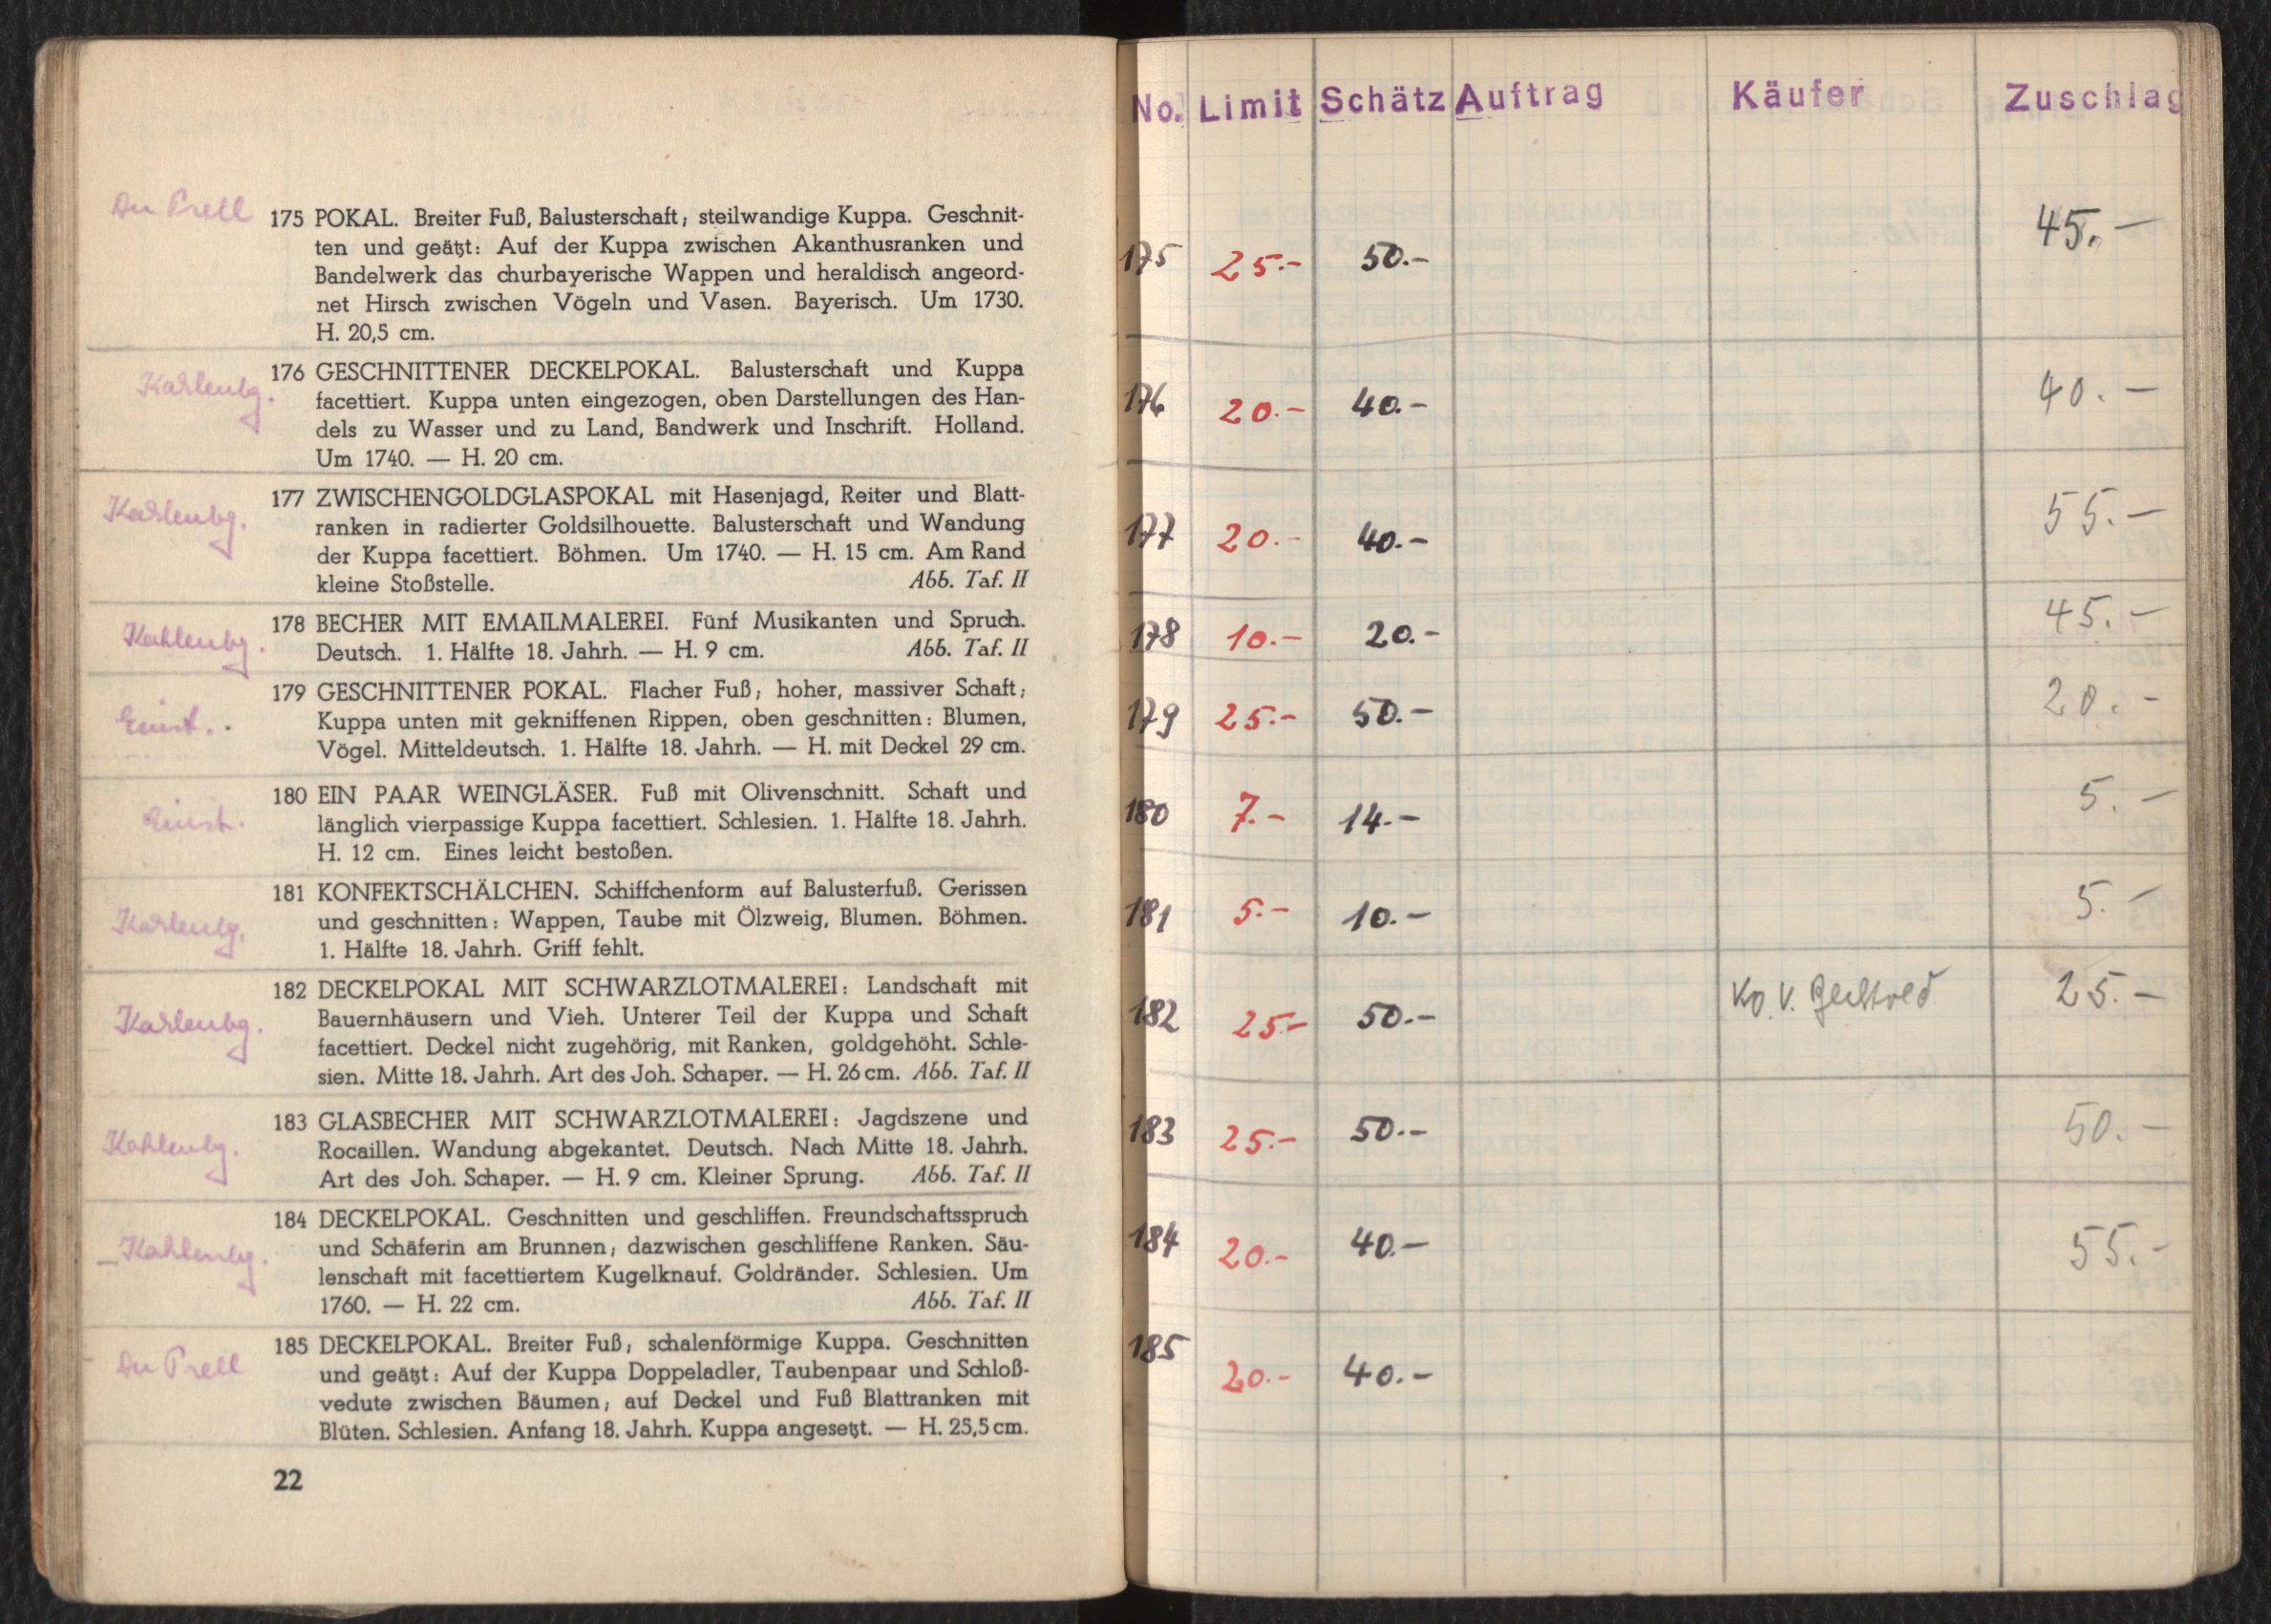 Du Prell
175 POKAL. Breiter Fuß, Balusterschaft; steilwandige Kuppa. Geschnit-
ten und geätzt: Auf der Kuppa zwischen Akanthusranken und
Bandelwerk das churbayerische Wappen und heraldisch angeord-
net Hirsch zwischen Vögeln und Vasen. Bayerisch. Um 1730.
H. 20,5 cm.
Kahlenbg.
176 GESCHNITTENER DECKELPOKAL. Balusterschaft und Kuppa
facettiert. Kuppa unten eingezogen, oben Darstellungen des Han-
dels zu Wasser und zu Land, Bandwerk und Inschrift. Holland.
Um 1740. — H. 20 cm.
Kahlenbg.
177 ZWISCHENGOLDGLASPOKAL mit Hasenjagd, Reiter und Blatt-
ranken in radierter Goldsilhouette. Balusterschaft und Wandung
der Kuppa facettiert. Böhmen. Um 1740. — H. 15 cm. Am Rand
kleine Stoßstelle. Abb. Taf. II
Kahlenbg.
178 BECHER MIT EMAILMALEREI. Fünf Musikanten und Spruch.
Deutsch. 1. Hälfte 18. Jahrh. — H. 9 cm. Abb. Taf. II
179 GESCHNITTENER POKAL. Flacher Fuß; hoher, massiver Schaft;
Kuppa unten mit gekniffenen Rippen, oben geschnitten: Blumen,
Vögel. Mitteldeutsch. 1. Hälfte 18. Jahrh. — H. mit Deckel 29 cm.
180 EIN PAAR WEINGLÄSER. Fuß mit Olivenschnitt. Schaft und
länglich vierpassige Kuppa facettiert. Schlesien. 1. Hälfte 18. Jahrh.
H. 12 cm. Eines leicht bestoßen.
Kahlenbg.
181 KONFEKTSCHÄLCHEN. Schiffchenform auf Balusterfuß. Gerissen
und geschnitten: Wappen, Taube mit Ölzweig, Blumen. Böhmen.
1. Hälfte 18. Jahrh. Griff fehlt.
Kahlenbg.
182 DECKELPOKAL MIT SCHWARZLOTMALEREI: Landschaft mit
Bauernhäusern und Vieh. Unterer Teil der Kuppa und Schaft
facettiert. Deckel nicht zugehörig, mit Ranken, goldgehöht. Schle-
sien. Mitte 18. Jahrh. Art des Joh. Schaper. — H. 26 cm. Abb. Taf. II
Kahlenbg.
183 GLASBECHER MIT SCHWARZLOTMALEREI: Jagdszene und
Rocaillen. Wandung abgekantet. Deutsch. Nach Mitte 18. Jahrh.
Art des Joh. Schaper. — H. 9 cm. Kleiner Sprung. Abb. Taf. II
Kahlenbg.
184 DECKELPOKAL. Geschnitten und geschliffen. Freundschaftsspruch
und Schäferin am Brunnen; dazwischen geschliffene Ranken. Säu-
lenschaft mit facettiertem Kugelknauf. Goldränder. Schlesien. Um
1760. — H. 22 cm. Abb. Taf. II
Du Prell
185 DECKELPOKAL. Breiter Fuß; schalenförmige Kuppa. Geschnitten
und geätzt: Auf der Kuppa Doppeladler, Taubenpaar und Schloß-
vedute zwischen Bäumen; auf Deckel und Fuß Blattranken mit
Blüten. Schlesien. Anfang 18. Jahrh. Kuppa angesetzt. — H. 25,5 cm.
22
No. Limit Schätz Auftrag Käufer Zuschlag
175 25.- 50.- 45.-
176 20.- 40.- 40.-
177 20.- 40.- 55.-
178 10.- 20.- 45.-
179 25.- 50.- 20.-
180 7.- 14.- 5.-
181 5.- 10.- 5.-
182 25.- 50.- 25.-
183 25.- 50.- 50.-
184 20.- 40.- 55.-
185 20.- 40.-